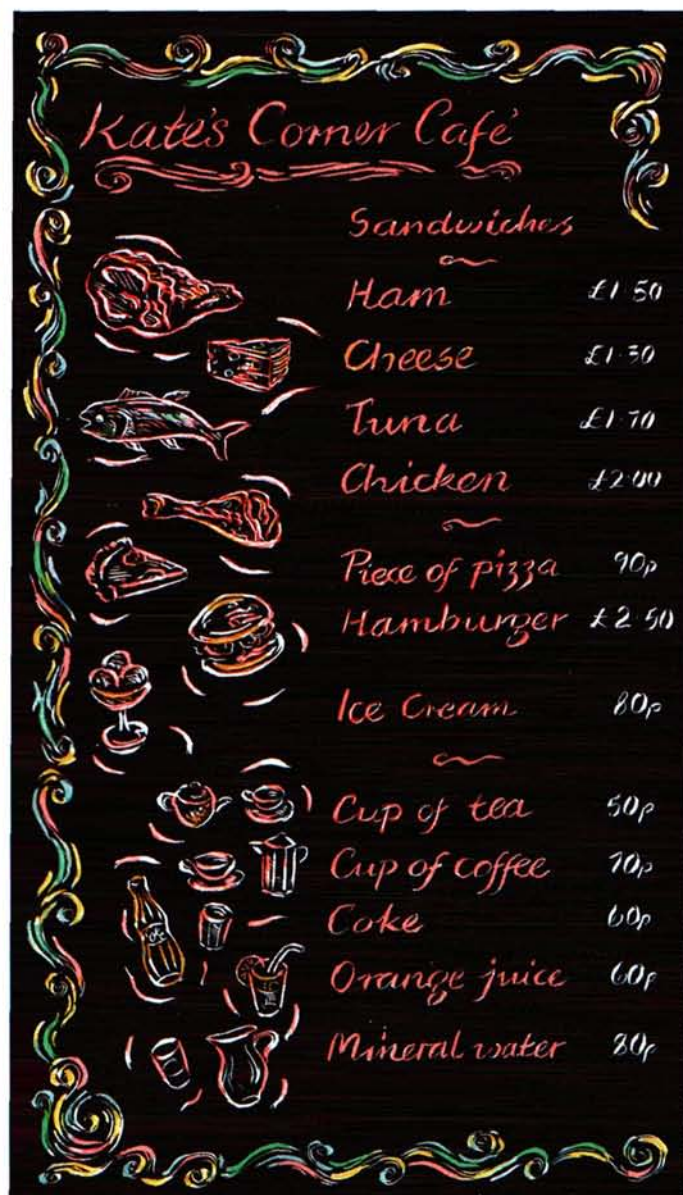 Kate's Corner Café
Sandwiches
Ham £1.50
Cheese £1.30
Tuna £1.70
Chicken £2.00
Piece of pizza 90p
Hamburger £2.50
Ice Cream 80p
Cup of tea 50p
Cup of coffee 70p
Coke 60p
Orange juice 60p
Mineral water 80p